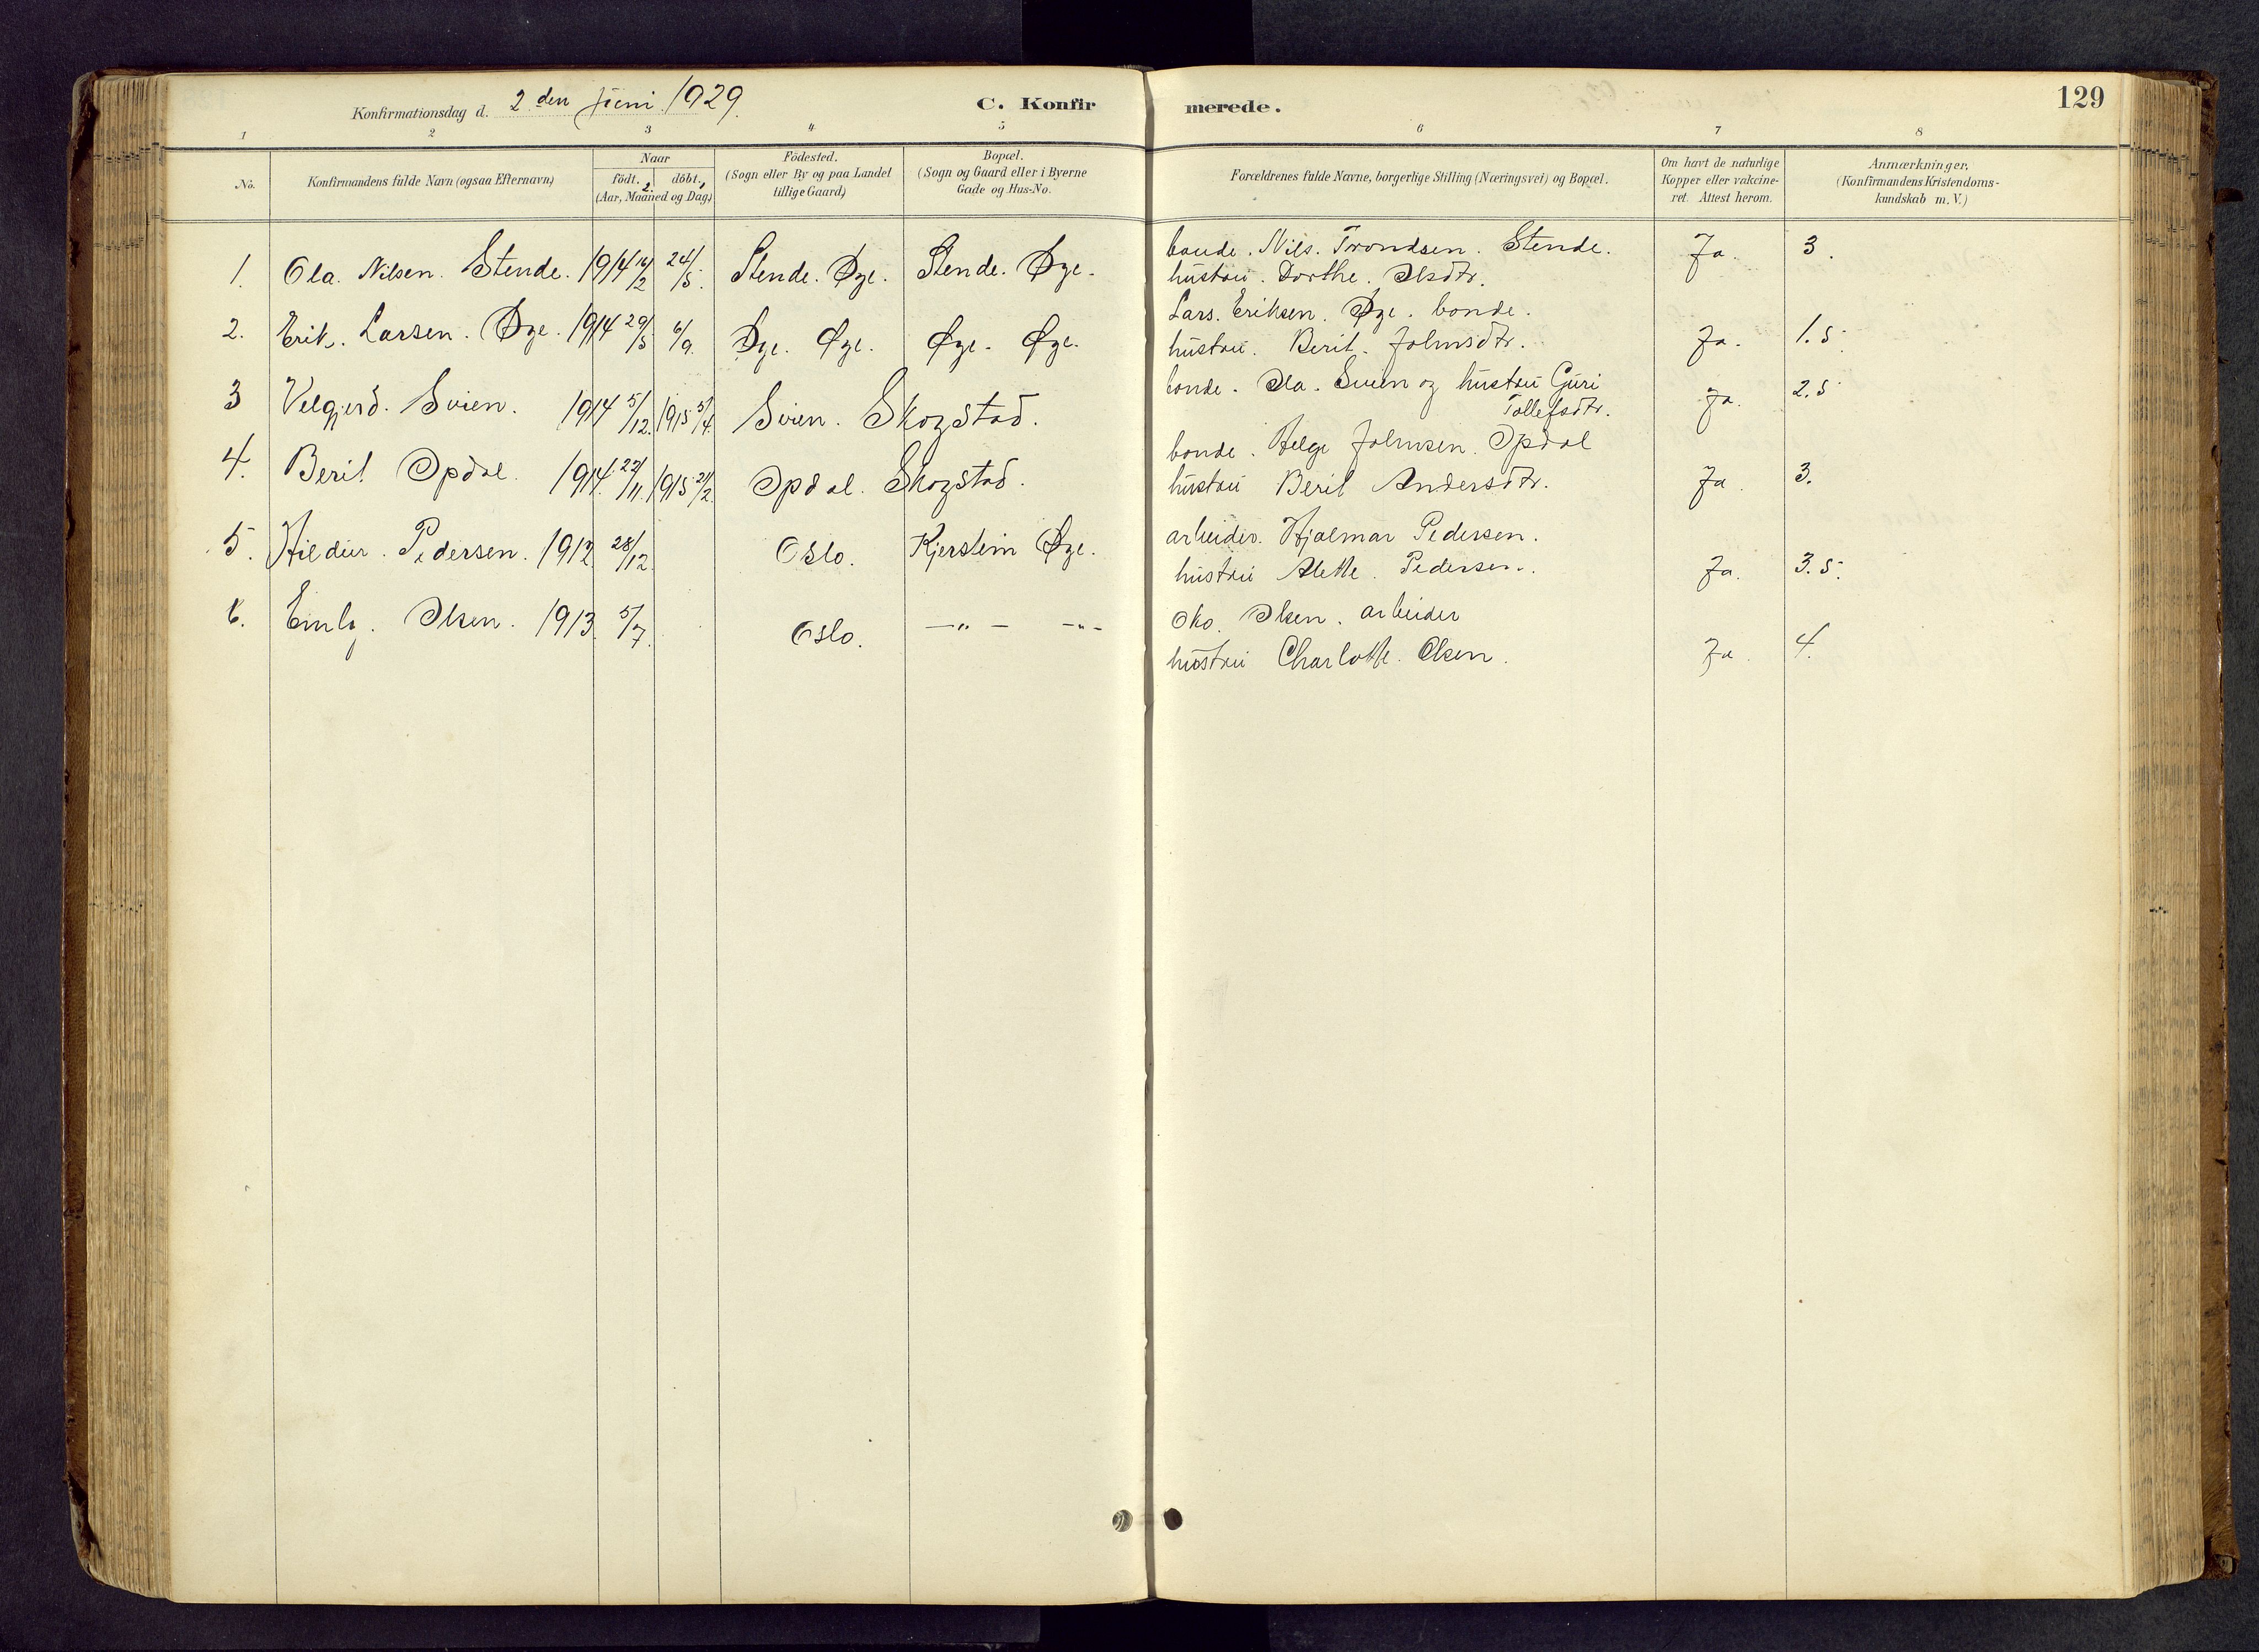 Konfirmationsdag d. 2den Juni 1929.
C. Konfirmerede.
129
1 2 3 4 5 6 7 8
No.
Konfirmandens fulde Navn (ogsaa Efternavn)
Naar
födt, 2. döbt, 1
(Aar, Maaned og Dag)
Födested.
(Sogn eller By og paa Landet
tillige Gaard)
Bopæl.
(Sogn og Gaard eller i Byerne
Gade og Hus-No.
Forældrenes fulde Navne, borgerlige Stilling (Næringsvei) og Bopæl.
Om havt de naturlige
Kopper eller vakcine-
ret. Attest herom.
Anmærkninger.
(Konfirmandens Kristendoms-
kundskab m. V.)
1. Ola. Nilsen. Stende. 1914 14/2 24/5. Stende. Øye. Stende. Øye. bonde. Nils. Trondsen. Stende. Ja. 3.
hustru. Dorthe. Olsdtr.
2. Erik. Larsen. Øye. 1914 29/5 6/9. Øye. Øye. Øye. Øye. Lars. Eriksen. Øye. bonde.
hustru. Berit. Johnsdtr. Ja. 1.5.
3 Velgjerd. Svien. 1914 5/12. 1915 5/4. Svien. Skogstad. bonde. Ola. Svien og hustru Guri Ja. 2.5
Tollefsdtr.
4. Berit Opdal. 1914. 22/11. 1915 21/2. Opdal. Skogstad. bonde. Helge Johnsen. Opdal
hustru Berit Andersdtr. Ja. 3.
5. Hildur. Pedersen. 1912 28/12. Oslo. Kjerstein Øye. arbeider. Hjalmar Pedersen.
hustru Alette. Pedersen. Ja. 3.5.
6. Emly. Olsen. 1913. 5/7. Oslo. —"— -"- Olsen. arbeider
hustru Charlotte. Olsen. Ja. 4.